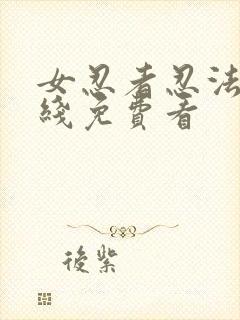 女忍者忍法
綫免費看
後紫